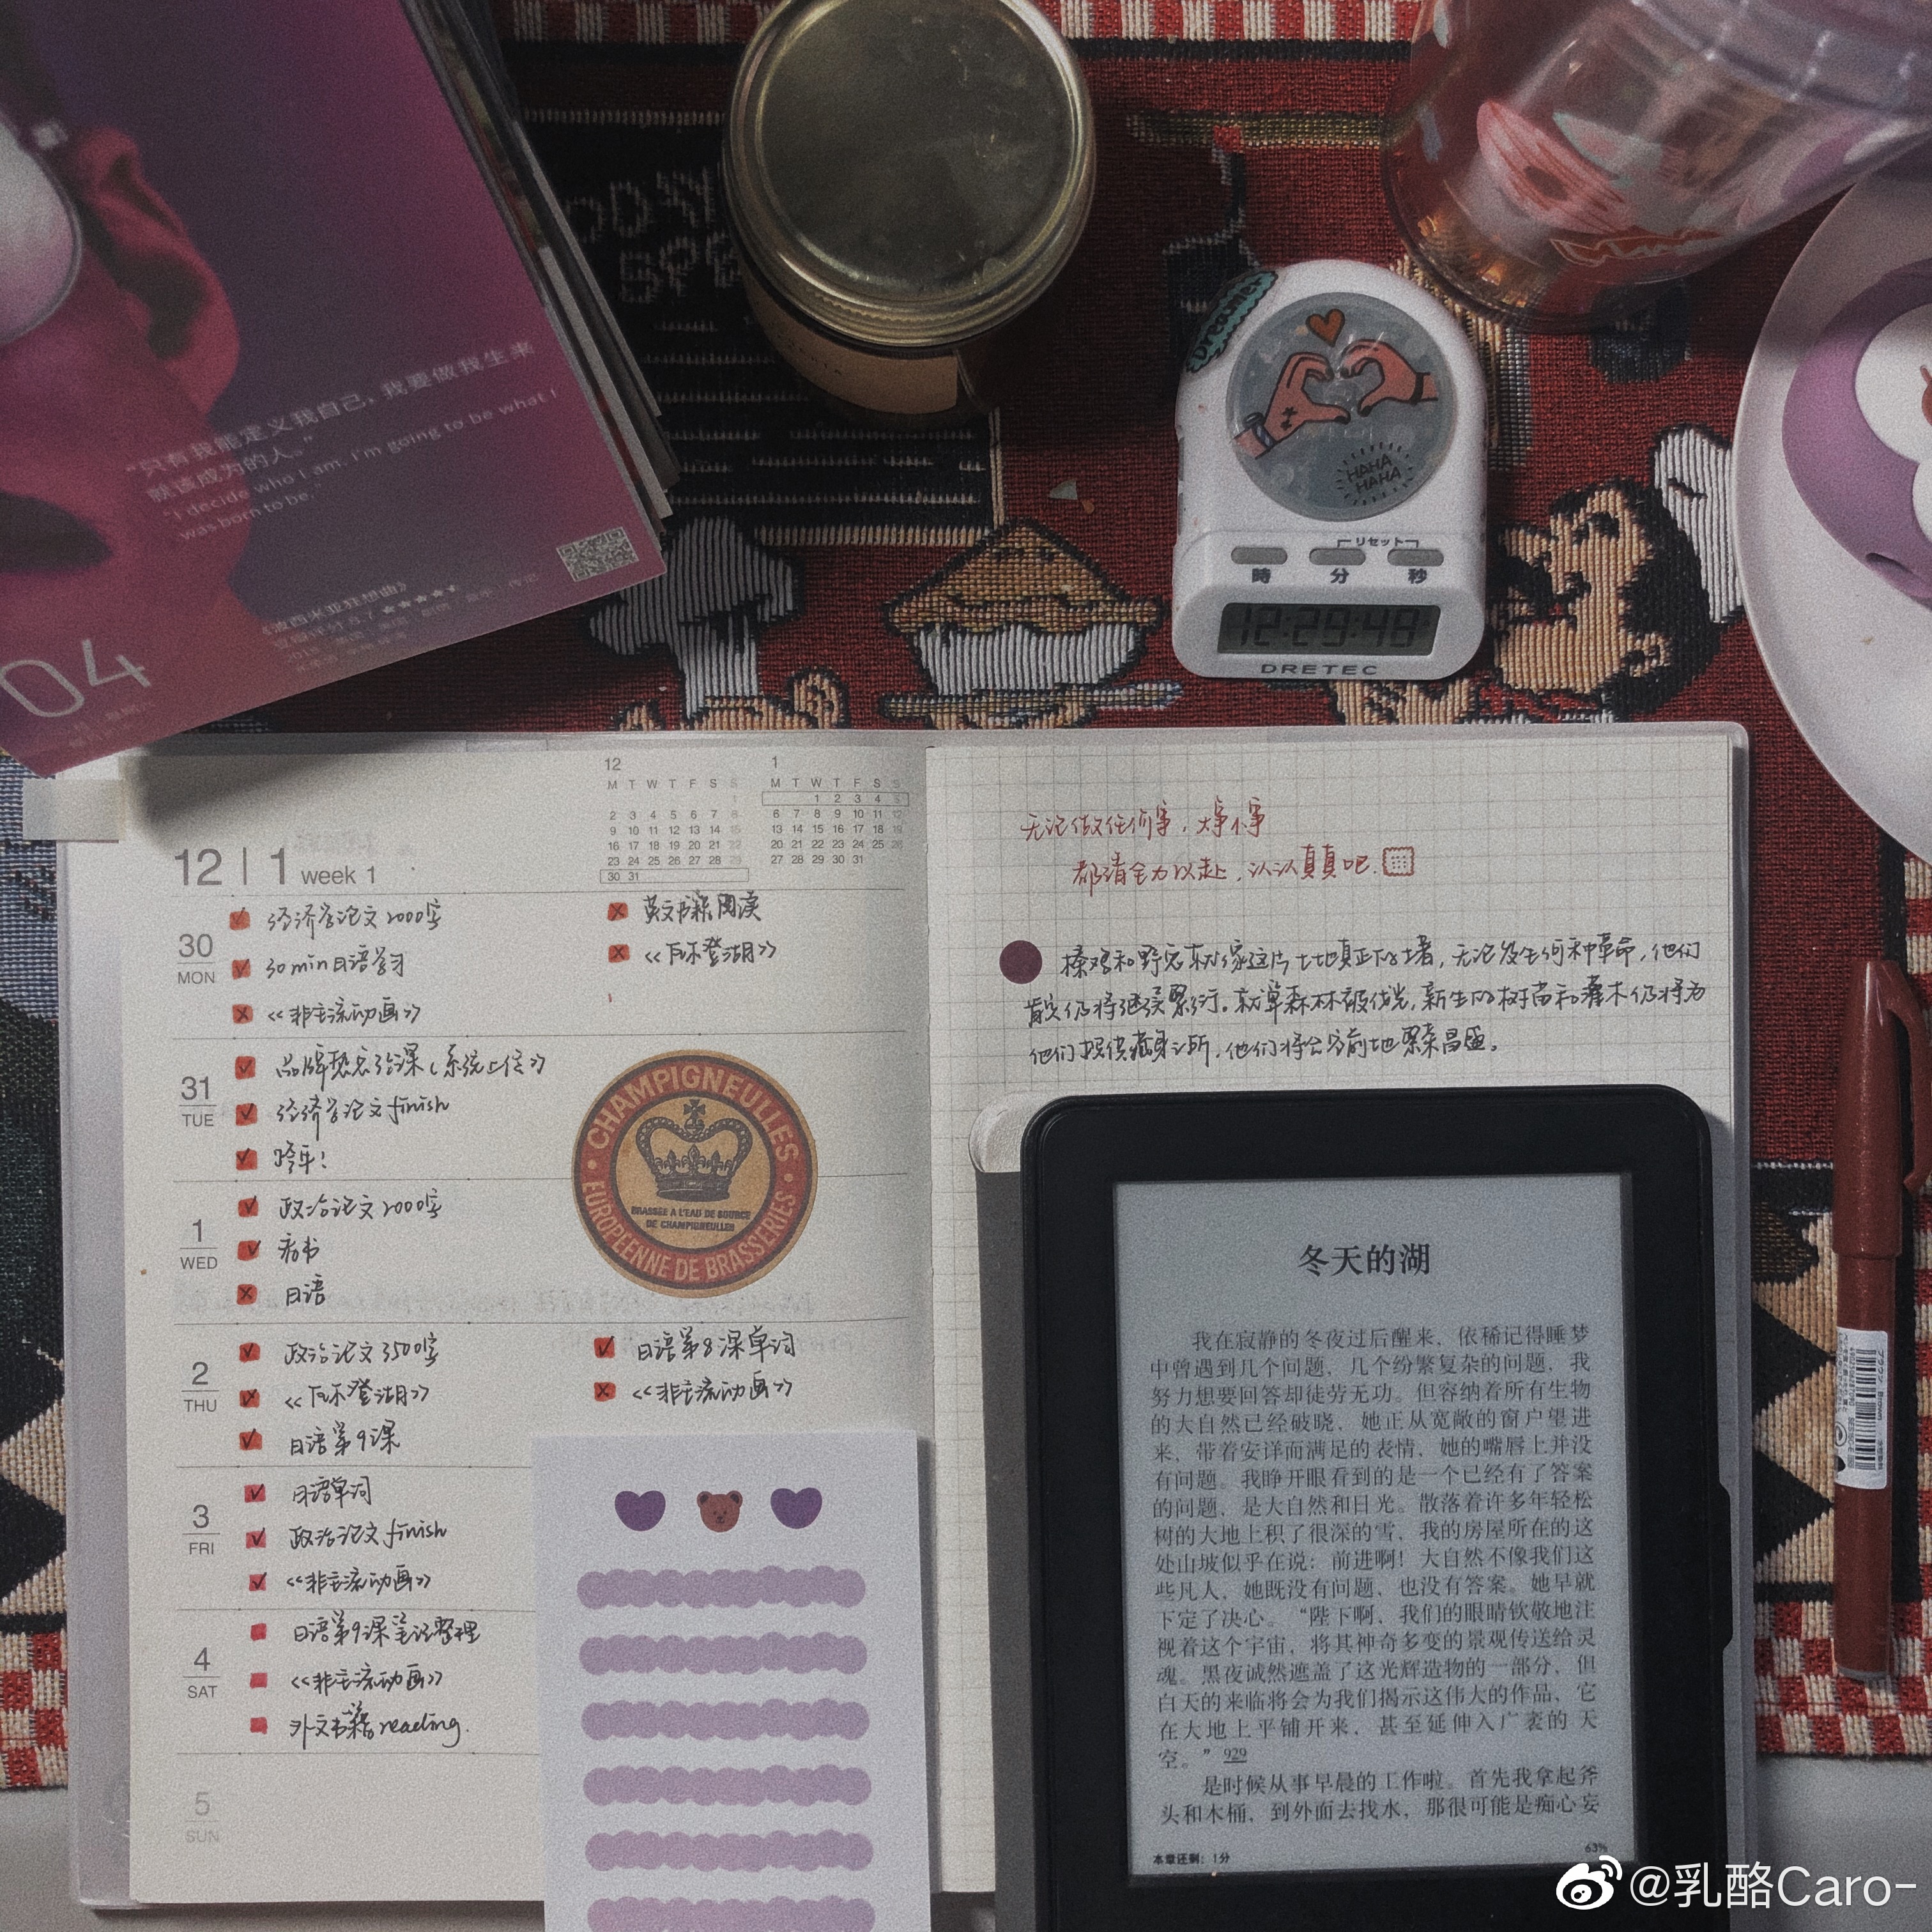 “只有我能定义我自己，我要做我生来
就该成为的人。”
“I decide who I am. I'm going to be what I
was born to be.”
《波西米亚狂想曲》
04
HAHA
HAHA
リセット
時 分 秒
12:29:48
DRETEC
12 | 1 week 1
12
M T W T F S S
1
2 3 4 5 6 7 8
9 10 11 12 13 14 15
16 17 18 19 20 21 22
23 24 25 26 27 28 29
30 31
1
M T W T F S S
1 2 3 4 5
6 7 8 9 10 11 12
13 14 15 16 17 18 19
20 21 22 23 24 25 26
27 28 29 30 31
30
MON
经济学论文2000字
30min日语学习
《非主流动画》
英文书籍阅读
《瓦尔登湖》
31
TUE
品牌 课(系统上传)
经济学论文finish
跨年！
1
WED
政治论文2000字
看书
日语
2
THU
政治论文3500字
《瓦尔登湖》
日语第9课
日语第8课单词
《非主流动画》
3
FRI
日语单词
政治论文finish
《非主流动画》
4
SAT
日语第9课笔记整理
《非主流动画》
外文书籍reading.
5
SUN
CHAMPIGNEULLES
BRASSÉE A L'EAU DE SOURCE
DE CHAMPIGNEULLES
EUROPÉENNE DE BRASSERIES
无论做任何事，大事小事
都请全力以赴，认认真真吧.
榛鸡和野兔就像这片土地真正的 ，无论发生何种革命，他们
肯定仍将继续繁衍。就算森林被伐光，新生的树苗和灌木仍将为
他们提供藏身之所，他们将会空前地繁荣昌盛。
冬天的湖
我在寂静的冬夜过后醒来，依稀记得睡梦
中曾遇到几个问题，几个纷繁复杂的问题，我
努力想要回答却徒劳无功。但容纳着所有生物
的大自然已经破晓，她正从宽敞的窗户望进
来，带着安详而满足的表情，她的嘴唇上并没
有问题。我睁开眼看到的是一个已经有了答案
的问题，是大自然和日光。散落着许多年轻松
树的大地上积了很深的雪，我的房屋所在的这
处山坡似乎在说：前进啊！大自然不像我们这
些凡人，她既没有问题，也没有答案。她早就
下定了决心。“陛下啊，我们的眼睛钦敬地注
视着这个宇宙，将其神奇多变的景观传送给灵
魂。黑夜诚然遮盖了这光辉造物的一部分，但
白天的来临将会为我们揭示这伟大的作品，它
在大地上平铺开来，甚至延伸入广袤的天
空。”929
是时候从事早晨的工作啦。首先我拿起斧
头和木桶，到外面去找水，那很可能是痴心妄
本章还剩：1分
63%
ブラウン Brown
@乳酪Caro-